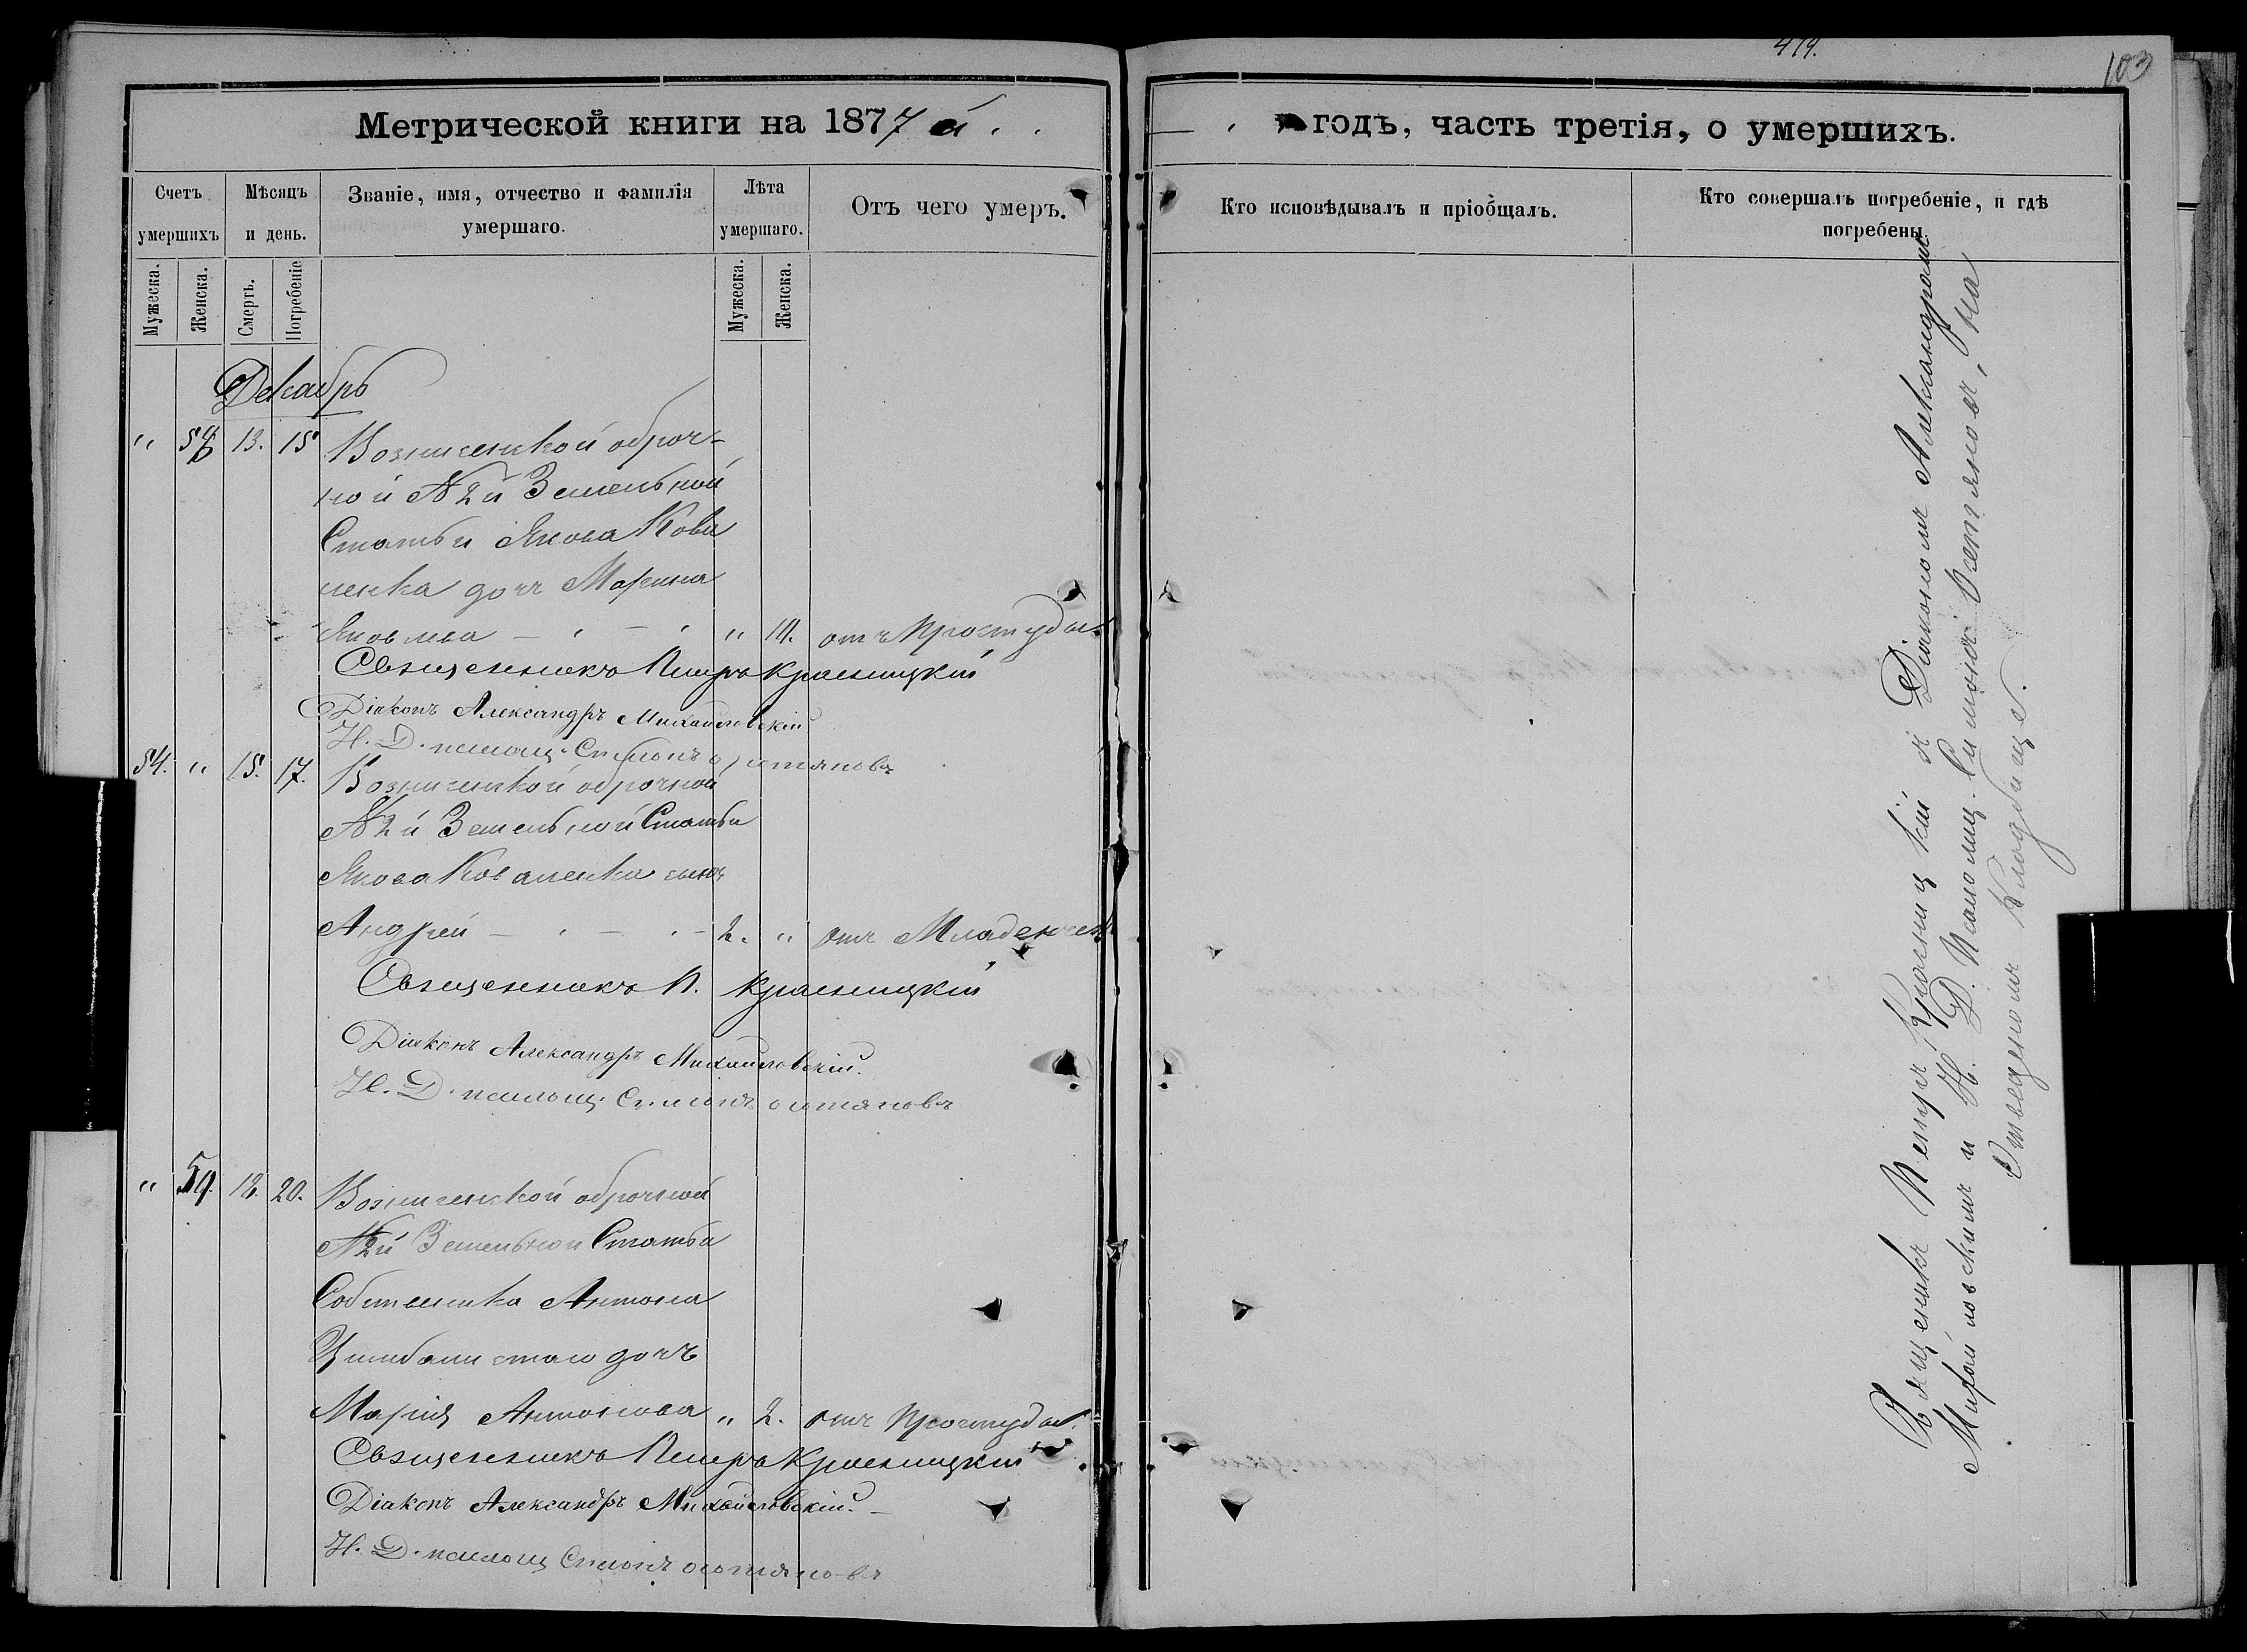 474.
103
Метрической книги на 1877 й . .
годъ, часть третія, о умершихъ.
Счетъ умершихъ
Мѣсяцъ и день.
Званіе, имя, отчество и фамилія умершаго.
Лѣта умершаго.
Отъ чего умеръ.
Кто исповѣдывалъ и пріобщалъ.
Кто совершалъ погребеніе, и гдѣ погребены.
Мужеска.
Женска.
Смерть.
Погребеніе
Мужеска.
Женска.
Декабрь
" 58 13. 15 оброч-
ной № 2й Земельной
Статьи Якова Кова
ленка дочь Марина
Яковлева " отъ простуды.
Священникъ Петръ Красницкій
Діаконъ Александръ Михайловскій
Н. Д. псаломщ. Симонъ Остяновъ
54. " 15. 17. оброчной
№ 2й Земельной Статьи
Якова Коваленка сынъ
Андрей 2. " отъ Младенчес
Священникъ П. Красницкій
Діаконъ Александръ Михайловскій.
Н. Д. псаломщ. Симонъ Остяновъ
" 59. 18. 20. оброчной
№ 2й Земельной Статьи
Собственника Антона
дочь
Марія Антонова " 2. отъ простуды.
Священникъ Петръ Красницкій
Діаконъ Александръ Михайловскій.
Н. Д. псаломщ Симонъ Остяновъ
Священникъ Петръ Красницкій съ Діакономъ Александромъ
Михайловскимъ и Н. Д. Псаломщ. Симонъ Остяновъ, на
Отведеномъ Кладбище.